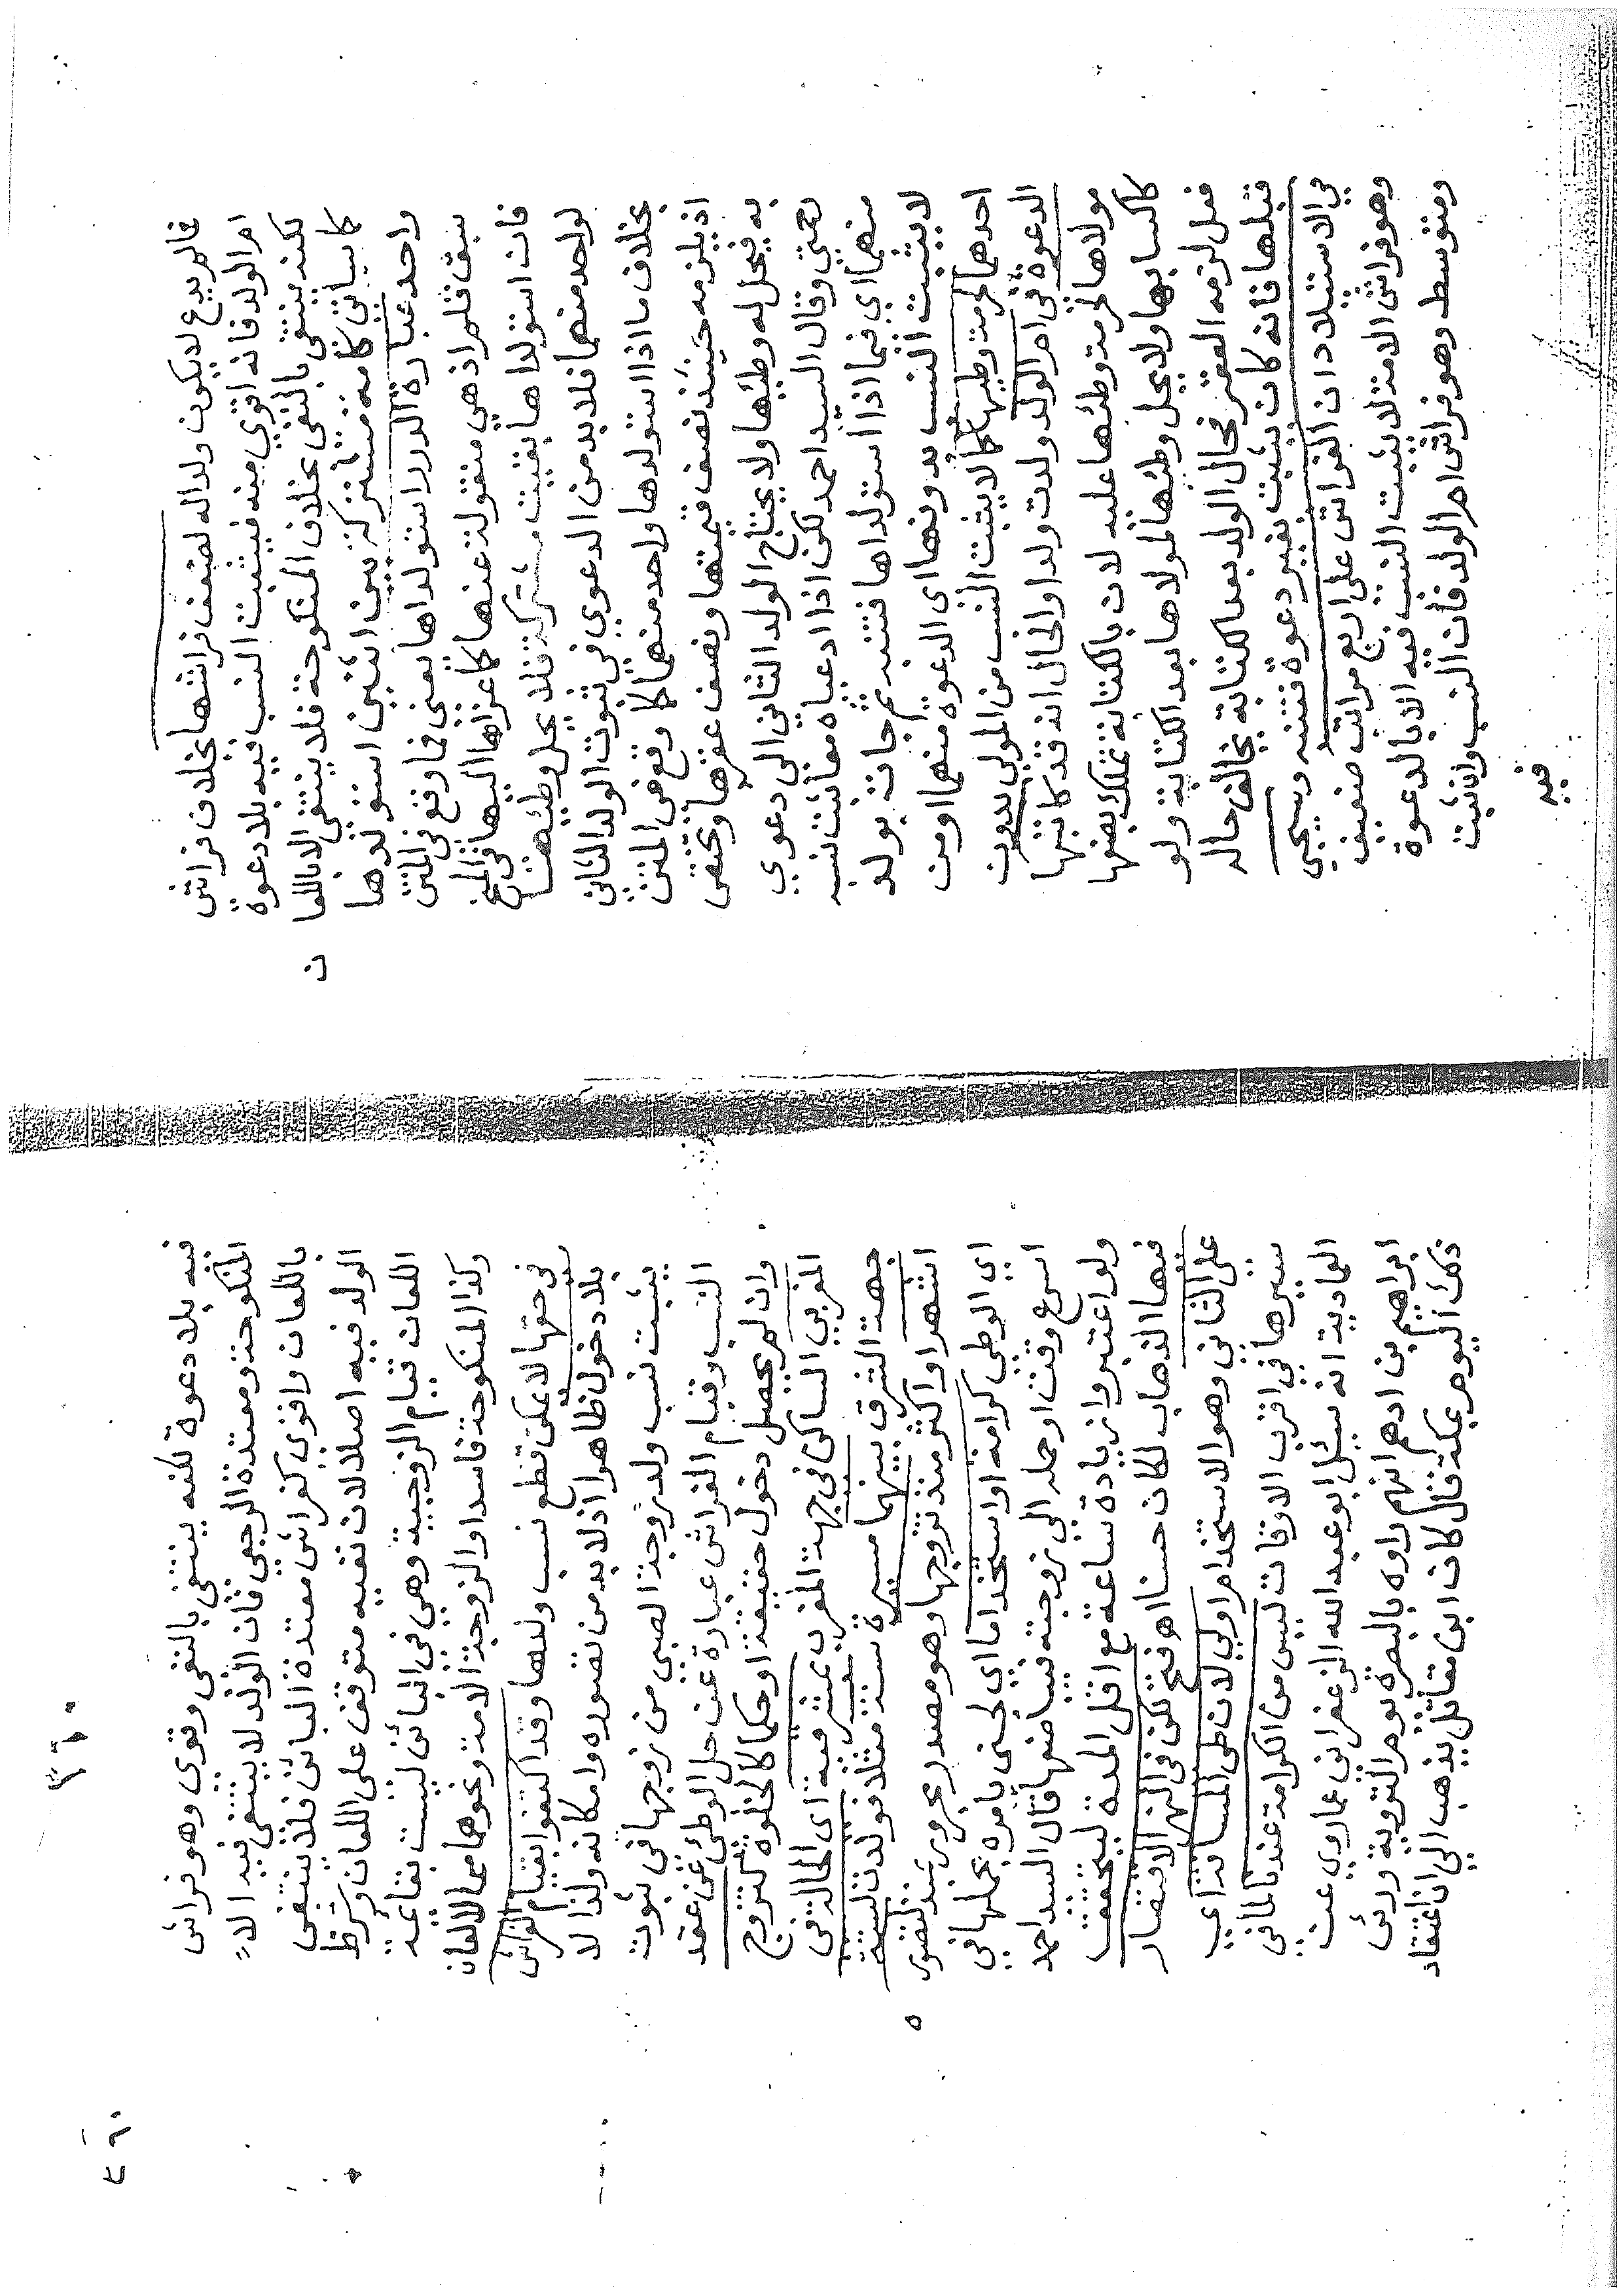 فالم يدع لا يكون ولدا له لضعف فراشها بخلاف فراش
ام الولد فانه اقوي منه فيثبت النسب فيه بلا دعوة
لكنه ينتفي بالنفي بخلاف المنكوحة فلا ينتفي الا باللعان
كما سيأتي كأمة مشتركة بين اثنين استولدها
واحد عبارة الدرر استولداها يعني فما وقع في المتن
سبق قلم اذ هي منقولة عنها كما عزاها اليها في المنح
فان استولداها بقيت مشتركة فلا يحل وطئها
لواحد منهما فلا بد من الدعوي في ثبوت الولد الثاني
بخلاف ما اذا استولدها واحد منهما كما وقع في المتن
اذ يلزمه حينئذ نصف قيمتها ونصف عقرها وتختص
به فيحل له وطئها ولا يحتاج الولد الثاني الي دعوي
رحمتي وقال السيد احمد لكن اذا ادعياه معا ثبت نسبه
منهما اي فيما اذا استولداها فتنبه ثم جات بولد
لا يثبت النسب بدونها اي الدعوة منهما او من
احدهما لحرمة وطيها كما لا يثبت النسب من المولي بدون
الدعوة في ام الولد ولدت ولدا والحال انه قد كاتبها
مولاها لحرمة وطئها عليه لان بالكتابة تملك بضعها
كاكسابها ولا يحل وطئها لمولاها بعد الكتابة ولو
فعل لزمه العقر فحال الولد بعد الكتابة يخالف حاله
قبلها فانه كان يثبت بغير دعوة فتنبه وسيجي
في الاستيلاد ان الفراش على اربع مراتب ضعيف
وهو فراش الامة لا يثبت النسب فيه الا بالدعوة
ومتوسط وهو فراش ام الولد فان النسب وان ثبت
فيه
٢٦٠
فيه بلا دعوة لكنه ينتفي بالنفي وقوي وهو فراش
المنكوحة ومعتدة الرجعي فان الولد لا ينتفي فيه الا
باللعان واقوي كفراش معتدة البائن فلا ينتفي
الولد فيه اصلا لان نفيه متوقف على اللعان وشرط
اللعان قيام الزوجية وهي في البائن ليست بقائمة
وكذا المنكوحة فاسدا والزوجة الامة ونحوها مما لا لعان
في حقها لا يمكن قطع نسب ولدها وقد اكتفوا بقيام الفراش
بلا دخول ظاهرا اذ لا بد من تصوره وامكانه ولذا لا
يثبت نسب ولد زوجة الصبي من زوجها في ثبوت
النسب وقيام الفراش عبارة عن حل الوطئ عن عقد
وان لم يحصل دخول حقيقة او حكما كالخلوة كتزوج
المغربي الساكن في جهة المغرب بمشرقية اي الحالة في
جهة الشرق بينهما مسيرة سنة مثلا فولدت لستة
اشهر او اكثر منذ تزوجها وهو مصدر مجرور بمنذ لتصوره
اي الوطي كرامة او استخداما اي لجني يامره بحملها في
اسرع وقت او حمله الي زوجته فيصا ضها قال السيد احمد
ولو اعتبروا زيادة ساعة مع اقل المدة ليتحقق
فيها الذهاب لكان حسنا اه فتح لكن في النهر الاقتصار
على الثاني وهو الاستخدام اولي لان طي المسافة اي
سيرها في اقرب الاوقات ليس من الكرامة عندنا لما في
العمادية انه سئل ابو عبد الله الزعفراني عما روي عن
ابراهيم بن ادهم انهم راوه بالبصرة يوم التروية ورئ
ذلك اليوم بمكة فقال كان ابن مقاتل يذهب الي ان اعتقاد
٤٩٠